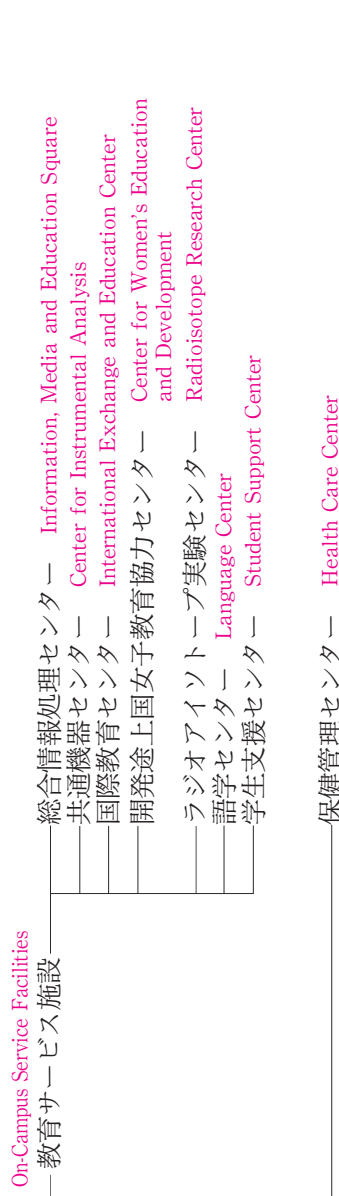 On-Campus Service Facilities
教育サービス施設
総合情報処理センター Information, Media and Education Square
共通機器センター Center for Instrumental Analysis
国際教育センター International Exchange and Education Center
開発途上国女子教育協力センター Center for Women's Education
and Development
ラジオアイソトープ実験センター Radioisotope Research Center
語学センター Language Center
学生支援センター Student Support Center
保健管理センター Health Care Center